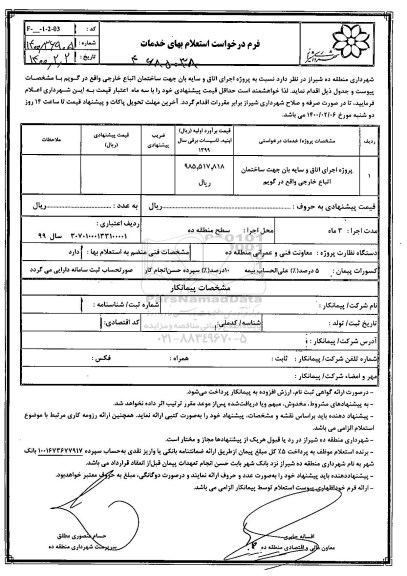 کد : F-__-1-2-03
فرم درخواست استعلام بهای خدمات
شماره :
تاریخ : ۱۴۰۰،۲،۲
شهرداری منطقه ده شیراز در نظر دارد نسبت به پروژه اجرای اتاق و سایه بان جهت ساختمان اتباع خارجی واقع در گویم با مشخصات
پیوست و جدول ذیل اقدام نماید. لذا خواهشمند است حداقل قیمت پیشنهادی خود را با سه ماه اعتبار قیمت به این شهرداری اعلام
فرمایید، تا در صورت صرفه و صلاح شهرداری شیراز برابر مقررات اقدام گردد. آخرین مهلت تحویل پاکات و پیشنهاد قیمت تا ساعت ۱۴ روز
دو شنبه مورخ ۱۴۰۰/۰۲/۰۶ می باشد.
ردیف
مشخصات پروژه/ خدمات درخواستی
قیمت برآورد اولیه (ریال) ابنیه، تاسیسات برقی سال ۱۳۹۹
ضریب پیشنهادی
قیمت پیشنهادی (ریال)
ملاحظات
۱
پروژه اجرای اتاق و سایه بان جهت ساختمان اتباع خارجی واقع در گویم
۹۸۵,۵۱۷,۸۱۸ ریال
قیمت پیشنهادی به حروف : ........ ریال
به عدد : ........ ریال
مدت اجرا : ۳ ماه
محل اجرا : سطح منطقه ده
ردیف اعتباری : ۳۰۷۰۱۰۰۰۱۳۳۱۰۰۰۱ سال ۹۹
دستگاه نظارت پروژه : معاونت فنی و عمرانی منطقه ده
مشخصات فنی منضم به استعلام بها : دارد
کسورات پیمان : ۵ درصد(٪) علی‌الحساب بیمه
۱۰درصد(٪) سپرده حسن‌انجام کار
صورتحساب ثبت سامانه دارایی می گردد
مشخصات پیمانکار
نام شرکت/ پیمانکار:
شماره ثبت/ شناسنامه :
تاریخ ثبت/ تولد :
شناسه/ کدملی :
کد اقتصادی:
آدرس شرکت/ پیمانکار:
شماره تلفن شرکت/ پیمانکار: ثابت :
همراه :
فکس :
مهر و امضاء شرکت/ پیمانکار:
ParsNamadData
۰۲۱-۸۸۳۴۹۶۷۰-۵
- درصورت ارائه گواهی ثبت نام، ارزش افزوده به پیمانکار پرداخت می‌شود.
- به پیشنهادهای مشروط، مخدوش، مبهم ویا دریافت‌شده پس‌از موعد مقرر ترتیب اثر داده نخواهد شد.
- پیشنهاد دهنده باید براساس نقشه و مشخصات، پیشنهاد خود را به‌صورت کتبی ارائه نماید. همچنین ارائه رزومه کاری مرتبط با موضوع
استعلام الزامی می باشد.
- شهرداری منطقه ده شیراز در رد یا قبول هریک از پیشنهادها مجاز و مختار است.
- برنده استعلام موظف به پرداخت ۵٪ کل مبلغ پیمان ازطریق ارائه ضمانتنامه بانکی یا واریز نقدی به‌حساب سپرده ۱۰۰۱۶۷۳۶۷۷۹۱۷ بانک
شهر به نام شهرداری منطقه ده شیراز نزد بانک شهر بابت حسن انجام تعهدات پیمان قبل‌از انعقاد قرارداد می باشد.
- پیشنهاددهنده باید پیشنهاد خود را به‌صورت عدد و حروف ارائه نمایند و درصورت دوگانگی، مبلغ به حروف معتبر خواهدبود.
- ارائه فرم خوداظهاری پیوست استعلام توسط پیمانکار الزامی می باشد.
افسانه
معاون مالی و اقتصادی منطقه ده
حسام منصوری مطلق
سرپرست شهرداری منطقه ده